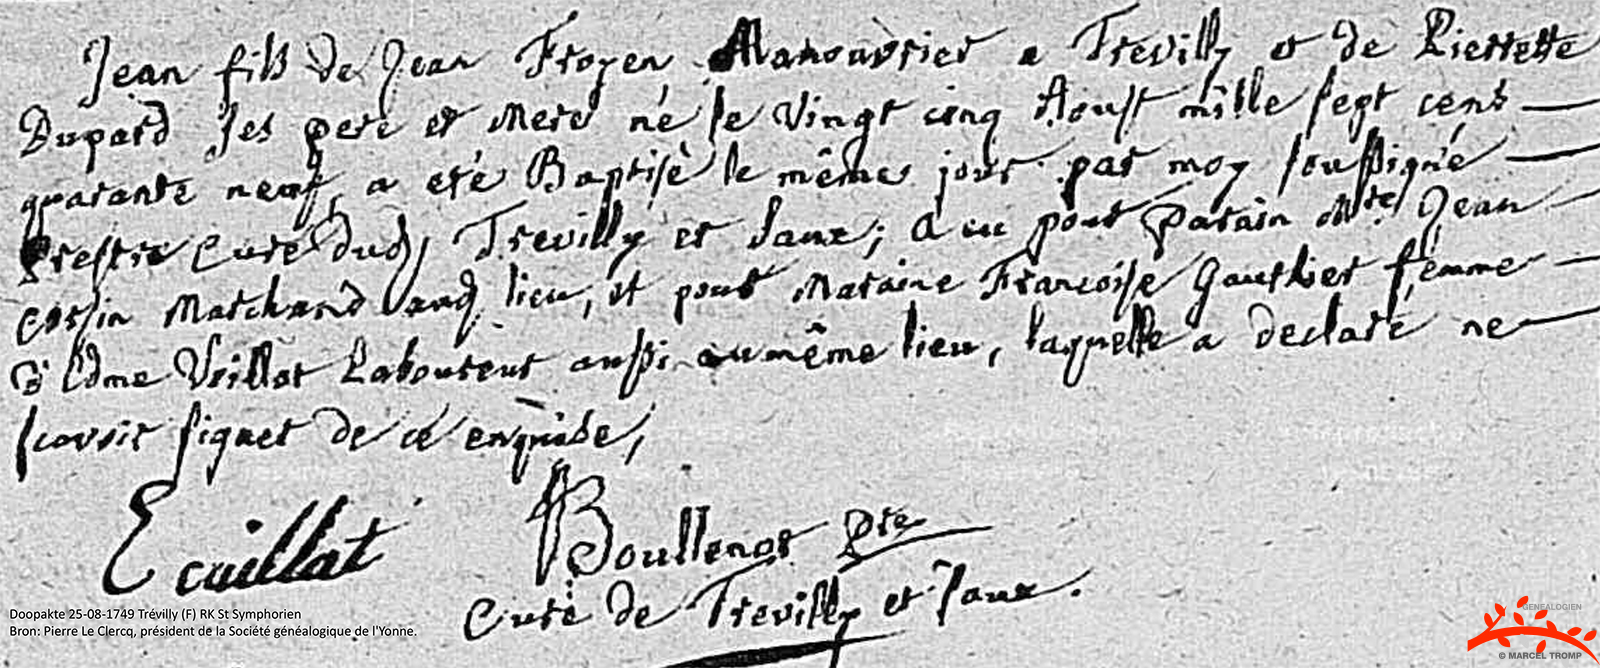 Jean fils de Jean Froyen Manouvrier a Trevilly et de Pierrette
Dupard ses pere et Mere né le vingt cinq Aoust mille sept cens
quarante neuf, a eté Baptisé le même jour par moy soussigné
Prestre Curé dud, Trevilly et Saux; a eu pour Parain Mtre Jean
Marchand aud, lieu, et pour Maraine Francoise Gauthier femme
d'Edme Laboureur aussi au même lieu, laquelle a declaré ne
scavoir signer de ce enquise,
E Boullenot Ptre
Curé de Trevilly et Saux.
Doopakte 25-08-1749 Trévilly (F) RK St Symphorien
Bron: Pierre Le Clercq, président de la Société généalogique de l'Yonne.
GENEALOGIEN
© MARCEL TROMP